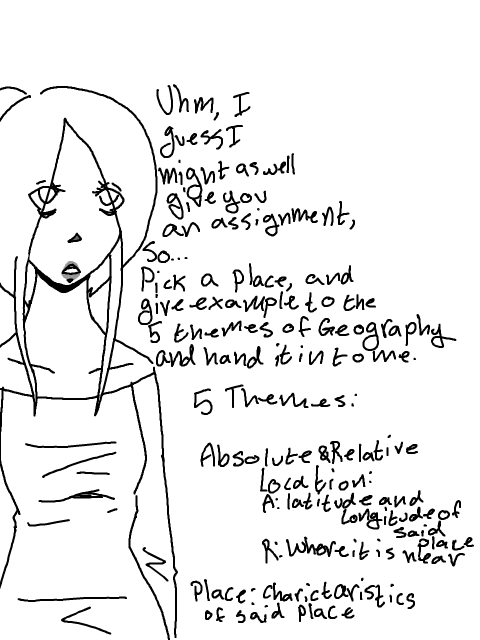 Uhm, I
guess I
might as well
give you
an assignment,
So...
Pick a place, and
give example to the
5 themes of Geography
and hand it in to me.
5 Themes:
Absolute & Relative
Location:
A: latitude and
longitude of
said
place
R: Where it is near
Place: charictaristics
of said place